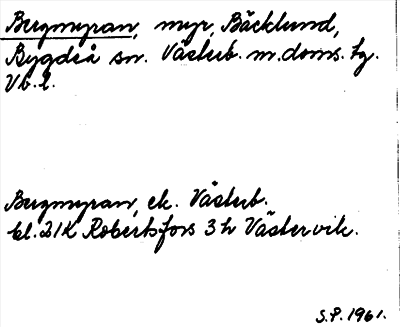 Bergmyran, myr, Bäcklund,
Bygdeå sn. Västerb. m. doms. tg.
Vb. l.
Bergmyran, ek. Västerb.
bl. 21K Robertsfors 3h Västervik.
S.P. 1961.